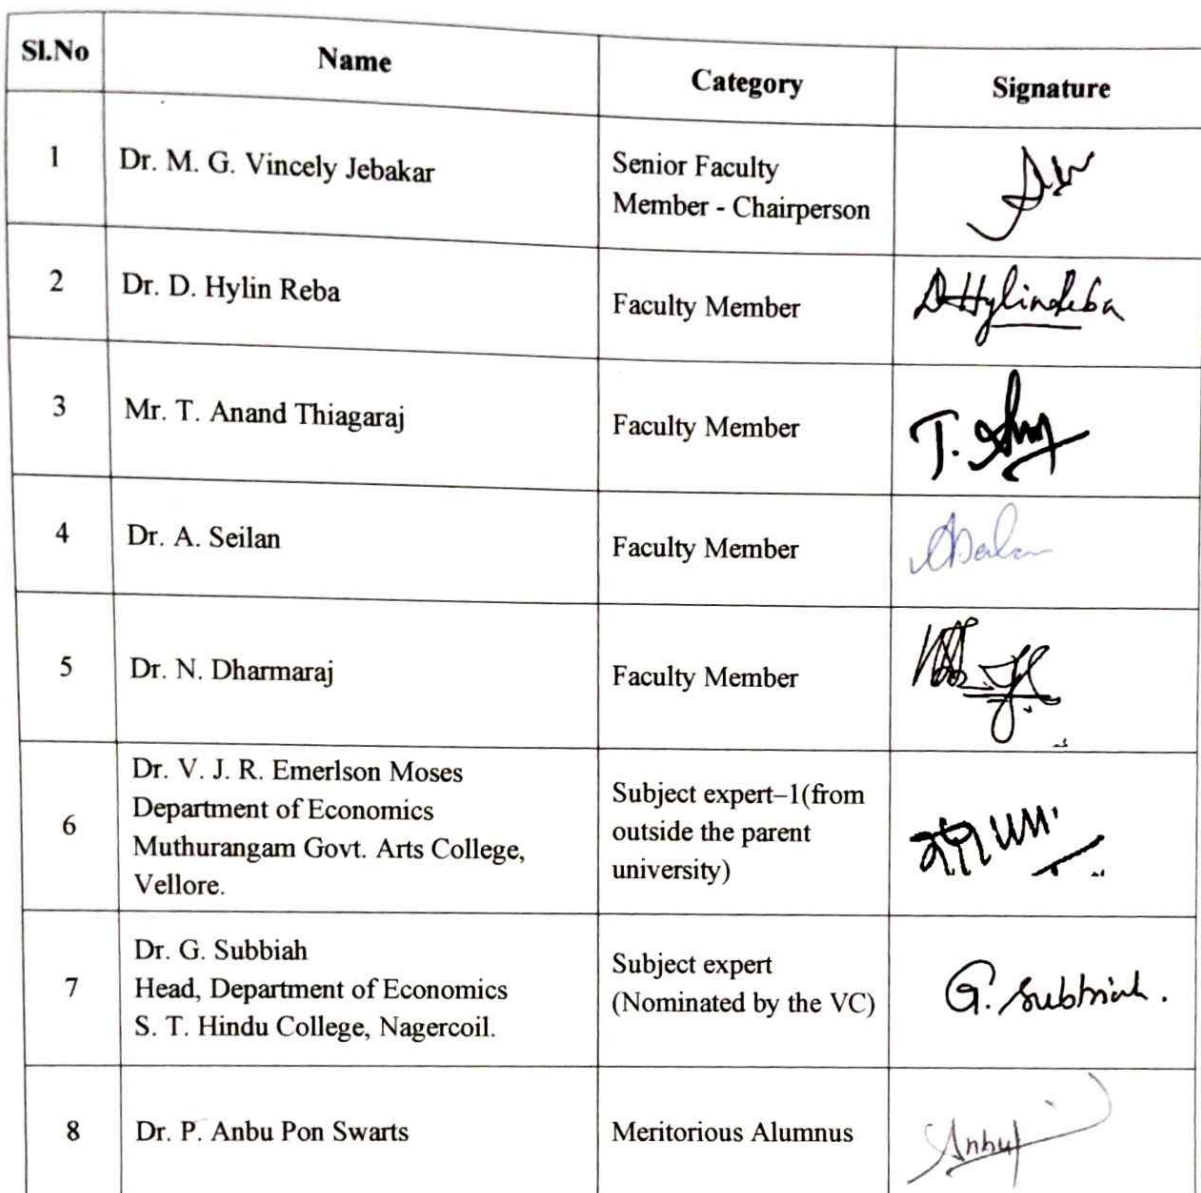 Sl.No Name Category Signature
1 Dr. M. G. Vincely Jebakar Senior Faculty
Member - Chairperson
2 Dr. D. Hylin Reba Faculty Member D. Hylin Reba
3 Mr. T. Anand Thiagaraj Faculty Member T.
4 Dr. A. Seilan Faculty Member
5 Dr. N. Dharmaraj Faculty Member
6 Dr. V. J. R. Emerlson Moses
Department of Economics
Muthurangam Govt. Arts College,
Vellore.
Subject expert–1(from
outside the parent
university)
7 Dr. G. Subbiah
Head, Department of Economics
S. T. Hindu College, Nagercoil.
Subject expert
(Nominated by the VC)
G. Subbiah.
8 Dr. P. Anbu Pon Swarts Meritorious Alumnus Anbu